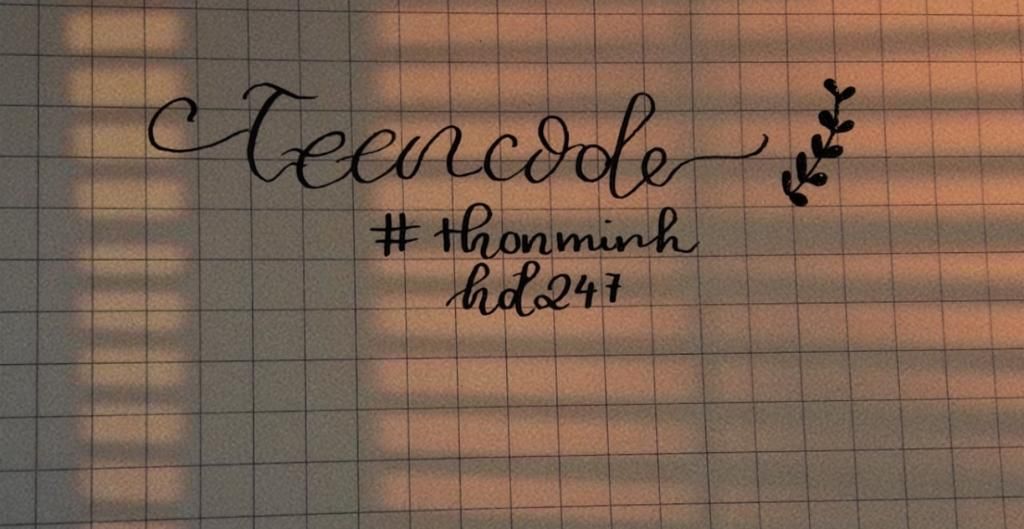 Teencode
#thonminh
hd247